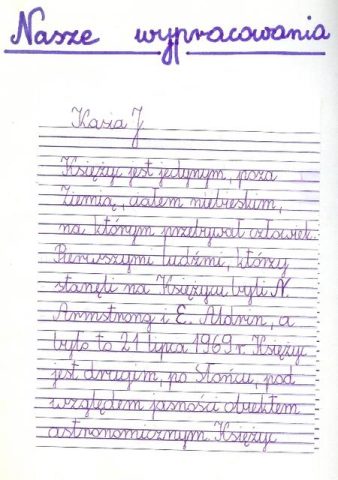 Nasze wypracowania
Kasia J.
Księżyc jest jedynym, poza
Ziemią, ciałem niebieskim,
na którym przebywał człowiek.
Pierwszymi ludźmi, którzy
stanęli na Księżycu byli N.
Armstrong i E. Aldrin, a
było to 21 lipca 1969 r. Księżyc
jest drugim, po Słońcu, pod
względem jasności obiektem
astronomicznym. Księżyc